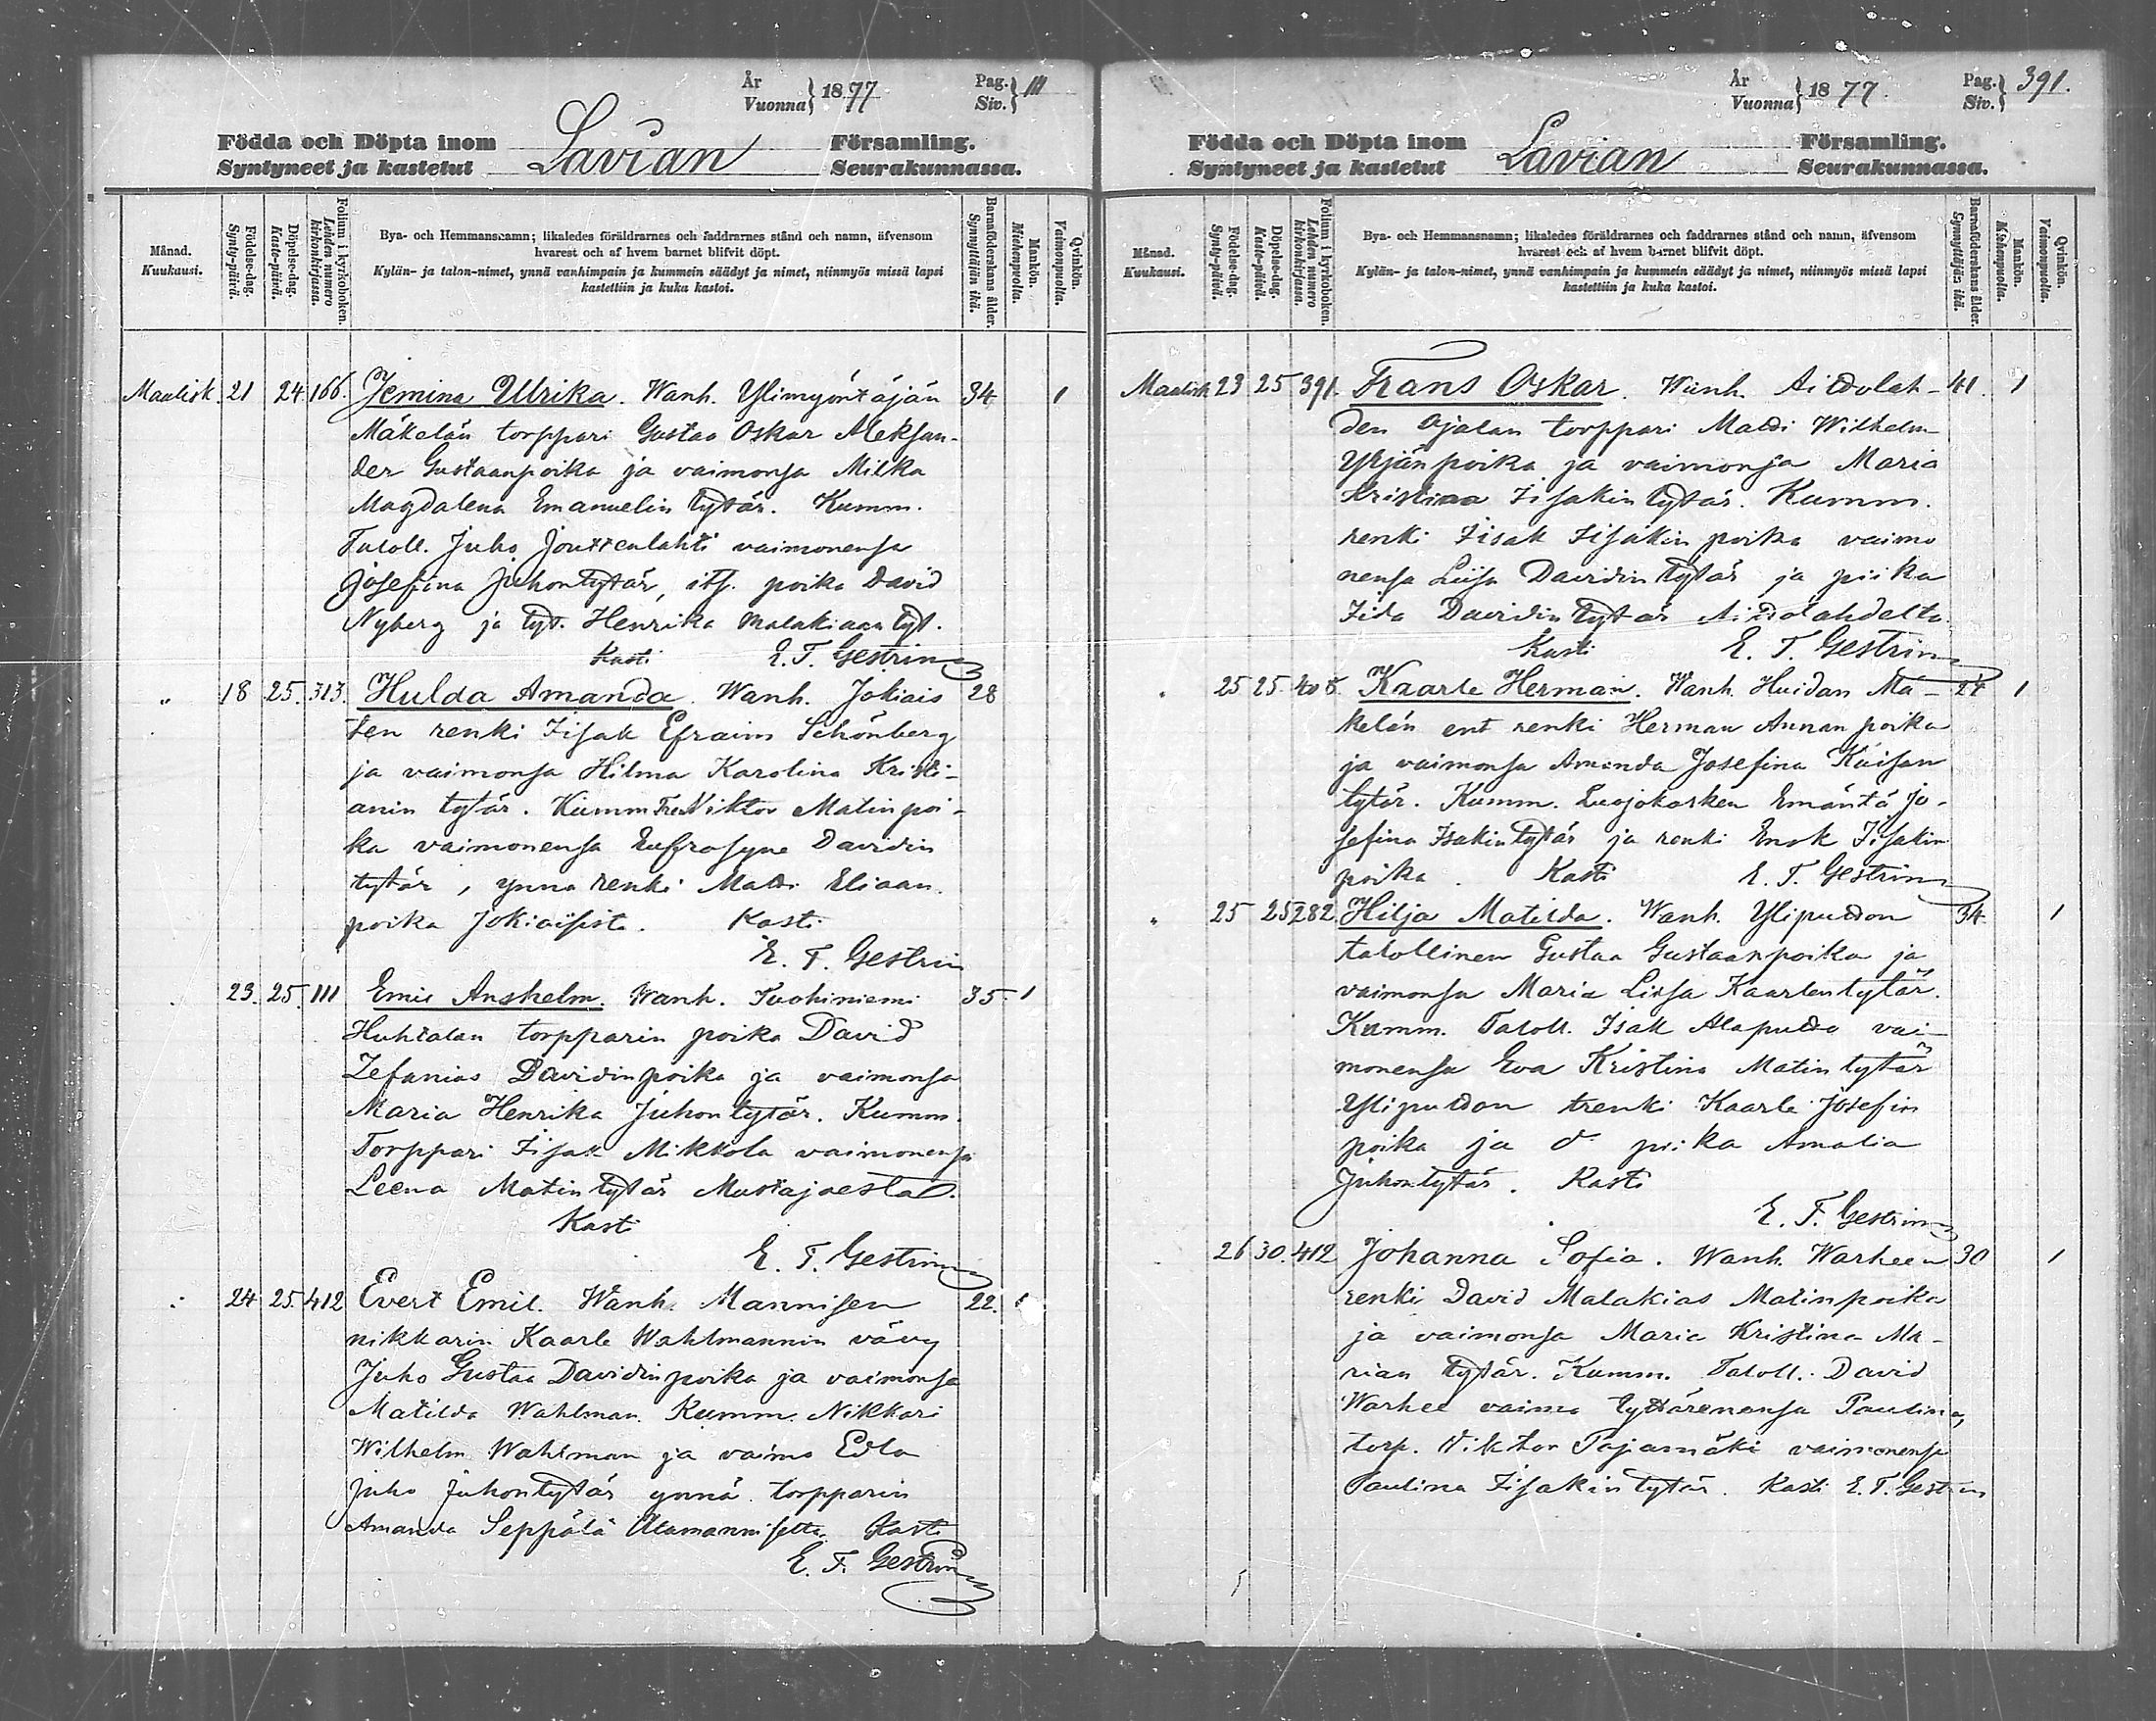 År
Vuonna } 1877
Pag.
Siv. } 111
Födda och Döpta inom Lavian Församling.
Syntyneet ja kastetut Seurakunnassa.
Månad.
Kuukausi.
Födelse-dag.
Synty-päivä.
Döpelse-dag.
Kaste-päivä.
Folium i kyrkoboken.
Lehden numero kirkonkirjassa.
Bya- och Hemmansnamn; likaledes föräldrarnes och faddrarnes stånd och namn, äfvensom
hvarest och af hvem barnet blifvit döpt.
Kylän- ja talon-nimet, ynnä vanhimpain ja kummein säädyt ja nimet, niinmyös missä lapsi
kastettiin ja kuka kastoi.
Barnaföderskans ålder.
Synnyttäjän ikä.
Mankön.
Miehenpuolia.
Qvinkön.
Vaimonpuolia.
Maalisk. 21 24 166. Jemina Ulrika. Wanh. Ylimyöntäjän 34 1
Mäkelän torppari Gustaa Oskar Aleksan-
der Gustaanpoika ja vaimonsa Milka
Magdalena Emanuelin tytär. Kumm.
Taloll. Juho Jouttenlahti vaimonensa
Josefina Juhontytär, its. poika David
Nyberg ja tyt. Henrika Malakiaan tyt.
Kasti E. F. Gestrin
" 18 25. 313. Hulda Amanda. Wanh. Jokiais 28
sen renki Iisak Efraim Schönberg
ja vaimonsa Hilma Karolina Kristi-
anin tytär. Kumm Viktor Matinpoi-
ka vaimonensa Eufrosyne Davidin
tytär, ynnä renki Matti Eliaan
poika Jokiaisista. Kasti
E. F. Gestrin
23. 25. 111 Emil Anshelm. Wanh. Tuohiniemi 35. 1
Huhtalan torpparin poika David
Zefanias Davidinpoika ja vaimonsa
Maria Henrika Juhontytär. Kumm.
Torppari Iisak Mikkola vaimonensa
Leena Matintytär Mustajoesta.
Kasti
E. F. Gestrin
24 25. 412 Evert Emil. Wanh. Mannisen 22. 1
nikkarin Kaarle Wahlmannin vävy
Juho Gustaa Davidinpoika ja vaimonsa
Matilda Wahlman. Kumm. Nikkari
Wilhelm Wahlman ja vaimo Edla
Juho Juhontytär ynnä torpparin
Amanda Seppälä Alamannisetta. Kasti
E. F. Gestrin
År
Vuonna } 1877.
Pag.
Siv. } 391.
Födda och Döpta inom Lavian Församling.
Syntyneet ja kastetut Seurakunnassa.
Månad.
Kuukausi.
Födelse-dag.
Synty-päivä.
Döpelse-dag.
Kaste-päivä.
Folium i kyrkoboken.
Lehden numero kirkonkirjassa.
Bya- och Hemmansnamn; likaledes föräldrarnes och faddrarnes stånd och namn, äfvensom
hvarest och af hvem barnet blifvit döpt.
Kylän- ja talon-nimet, ynnä vanhimpain ja kummein säädyt ja nimet, niinmyös missä lapsi
kastettiin ja kuka kastoi.
Barnaföderskans ålder.
Synnyttäjän ikä.
Mankön.
Miehenpuolia.
Qvinkön.
Vaimonpuolia.
Maalisk 23 25 391. Frans Oskar. Wanh. Aittolah- 41. 1
den Ojalan torppari Matti Wilhelm
Yrjänpoika ja vaimonsa Maria
Kristiina Iisakintytär. Kumm.
renki Iisak Iisakin poika vaimo
nensa Liisa Davidin tytär ja piika
Iida Davidin tytär Aittolahdelta.
Kasti E. F. Gestrin
" 25 25. Kaarle Herman. Wanh. Huidan Mä- 1
kelän ent renki Herman Annan poika
ja vaimonsa Amanda Josefina Kaisan
tytär. Kumm. Luojokosken Emäntä Jo-
sefina Isakintytär ja renki Enok Iisakin
poika. Kasti E. F. Gestrin
" 25 25 282. Hilja Matilda. Wanh. Yliputton 34. 1
talollinen Gustaa Gustaanpoika ja
vaimonsa Maria Liisa Kaarlentytär.
Kumm. Taloll. Isak Alaputto vai-
monensa Eva Kristina Matintytär
Yliputton trenki Kaarle Josefin
poika ja piika Amalia
Juhontytär. Kasti
E. F. Gestrin
26 30. 412 Johanna Sofia. Wanh. Warheen 30 1
renki David Malakias Matinpoika
ja vaimonsa Maria Kristina Ma-
rian tytär. Kumm. Taloll. David
Warhee vaimo tyttärenensa Paulina,
torp. Viktor Pajamäki vaimonensa
Paulina Iisakintytär. Kasti E. F. Gestrin